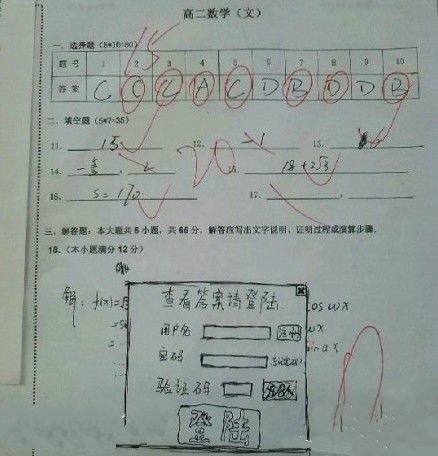 高二数学（文）
一、选择题（5*10=50）
15
题号 1 2 3 4 5 6 7 8 9 10
答案 C C C A C D B D D B
二、填空题（5*7=35）
11. 15 12. -1 13.
14. 18+2√3
20
16. S=170 17.
三、解答题：本大题共5小题，共65分．解答应写出文字说明、证明过程或演算步骤．
18.（本小题满分12分）
解：f(x)=
查看答案请登陆
cos wx
用户名 注册
wx
密码
验证码
登陆